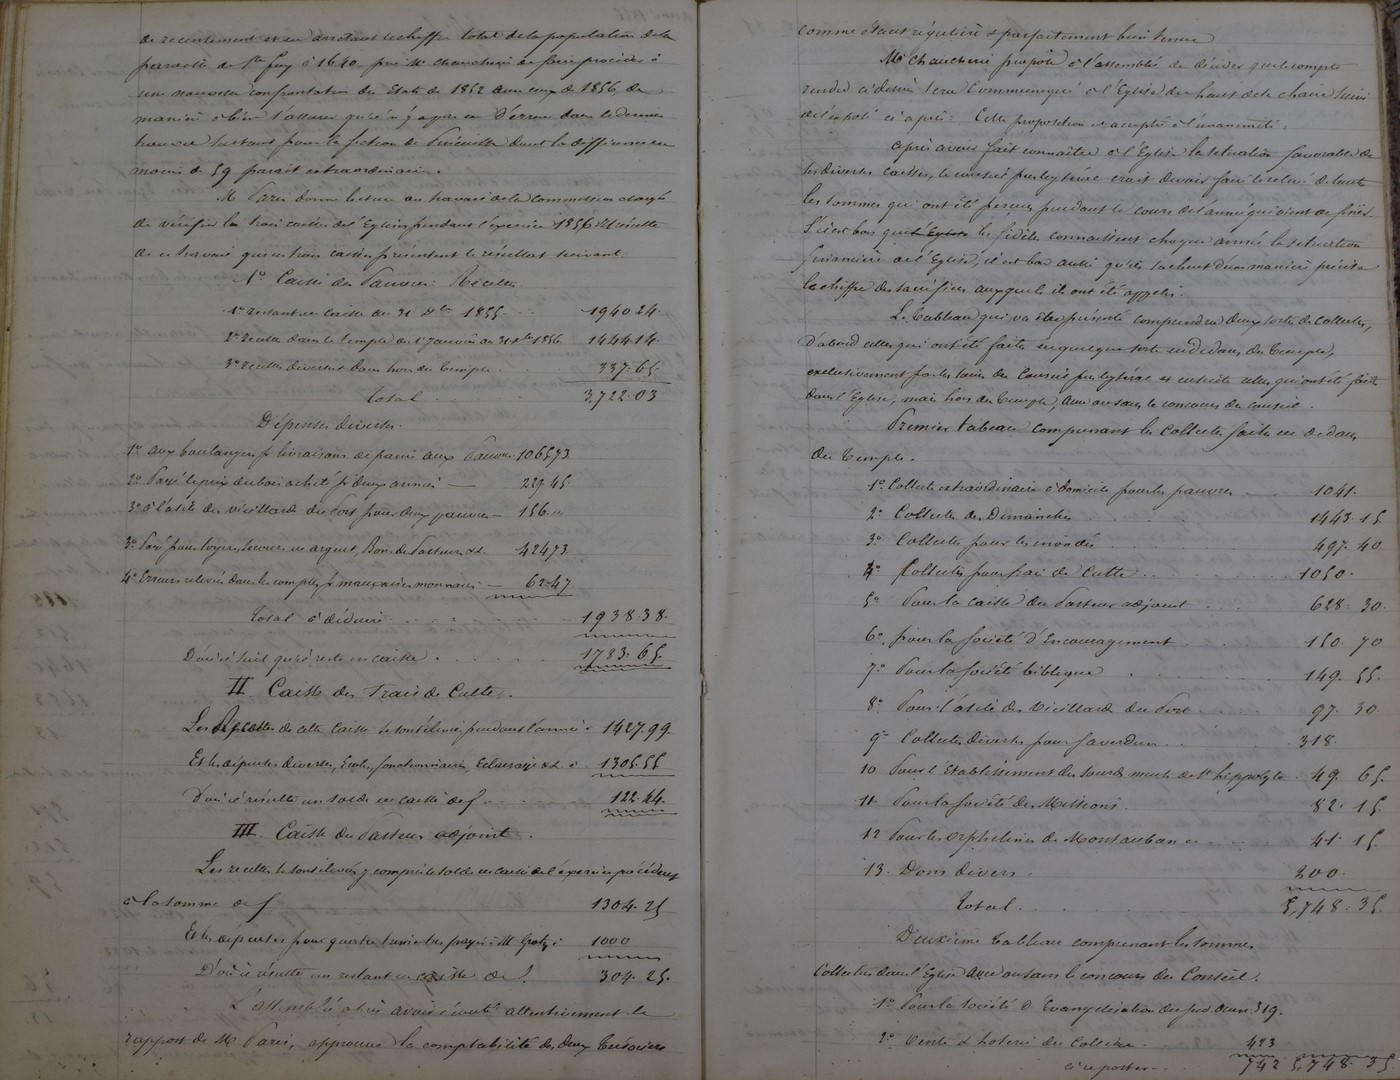 de recensement et en arrêtant le chiffre total de la population de la
paroisse de Ste foy à 1640, prie Mr Chaucherie de faire procéder à
une nouvelle confrontation des Etats de 1852 avec ceux de 1856, de
manière à bien s'assurer qu'il n'y a pas eu d'erreur dans le dernier
travail surtout pour la section de Pineuilh dont la différence en
moins de 59 paraît extraordinaire.
M Paris donne lecture du travail de la Commission chargée
de vérifier les trois caisses de l'Eglise pendant l'exercice 1856. Il résulte
de ce travail que ces trois caisses présentent le résultat suivant.
1o Caisse des Pauvres: Recettes
1o restant en caisse au 31 Xbre 1855 1940 24.
2o recettes dans le Temple du 1er Janvier au 31 Xbre 1856 1444.14.
3o recettes diverses dans hors du Temple 337.65
Total 3,722.03
Dépenses diverses.
1o aux boulangers pr livraisons de pains aux Pauvres 1065 73
2o Payé le prix du bois acheté pr deux années 229 45
3o à l'asile des vieillards du Port pour deux pauvres 156 "
3o Payé pour loyers, secours en argent, Bons des Pasteurs &a 424 73
4o Erreurs relevées dans les comptes & mauvaises monnaies 62.47
Total à déduire 1938.38.
D'où il suit qu'il reste en caisse 1783.65
II. Caisse des Frais de Culte.
Les Recettes de cette Caisse se sont élevées pendant l'année à 1427.99
Et les dépenses diverses, Ecoles, fonctionnaires, Eclairage &a à 1305.55
D'où il résulte un solde en caisse de f 122.44.
III. Caisse du Pasteur adjoint.
Les recettes se sont élevées y compris le solde en caisse de l'exercice précédent
à la somme de f 1304.25
Et les dépenses pour quatre trimestres payés à M. Grotz à 1000
D'où il résulte un restant en caisse de f. 304.25.
L'assemblée après avoir écouté attentivement le
rapport de M Paris, approuve la comptabilité des deux trésoriers
comme étant régulière & parfaitement bien tenue
Mr Chaucherie propose à l'assemblée de décider que le compte
rendu ci dessus sera communiqué à l'Eglise du haut de la chaire suivi
de l'exposé ci après: Cette proposition est acceptée à l'unanimité.
Après avoir fait connaître à l'Eglise la situation favorable de
ses diverses caisses, le conseil presbytéral croit devoir faire le relevé de toutes
les sommes qui ont été perçues pendant le cours de l'année qui vient de finir.
S'il est bon que l'Eglise les fidèles connaissent chaque année la situation
financière de l'Eglise, il est bon aussi qu'ils sachent d'une manière précise
le chiffre des sacrifices auxquels ils ont été appelés.
Le tableau qui va être présenté comprendra deux sortes de Collectes,
D'abord celles qui ont été faites en quelque sorte en dedans du Temple,
exclusivement par les soins du Conseil presbytéral et ensuite celles qui ont été faites
dans l'Eglise, mais hors du Temple, avec ou sans le concours du conseil.
Premier tableau comprenant les Collectes faites en dedans
du Temple.
1o Collecte extraordinaire à domicile pour les pauvres 1041.
2o Collectes des Dimanches 1443.15
3o Collectes pour les inondés 497.40
4o Collectes pour frais de Culte 1050.
5o Pour la caisse du Pasteur adjoint 628.30.
6o pour la Société d'Encouragement 150.70
7o Pour la Société biblique 149.55.
8o Pour l'asile des Vieillards du Port 97.30.
9o Collectes diverses pour Saverdun 318.
10 Pour l'Etablissement des sourds muets de St hippolyte 49.65.
11 Pour la Société des Missions. 82.15.
12 Pour les orphelines de Montauban 41.15
13. Dons divers. 200.
Total 5,748.35.
Deuxième tableau comprenant les sommes
Collectées dans l'Eglise avec ou sans le concours du Conseil.
1o Pour la Société d'Evangélisation du sud ouest 319.
2o Vente & loterie des Collines 423
à reporter 742 5,748.35